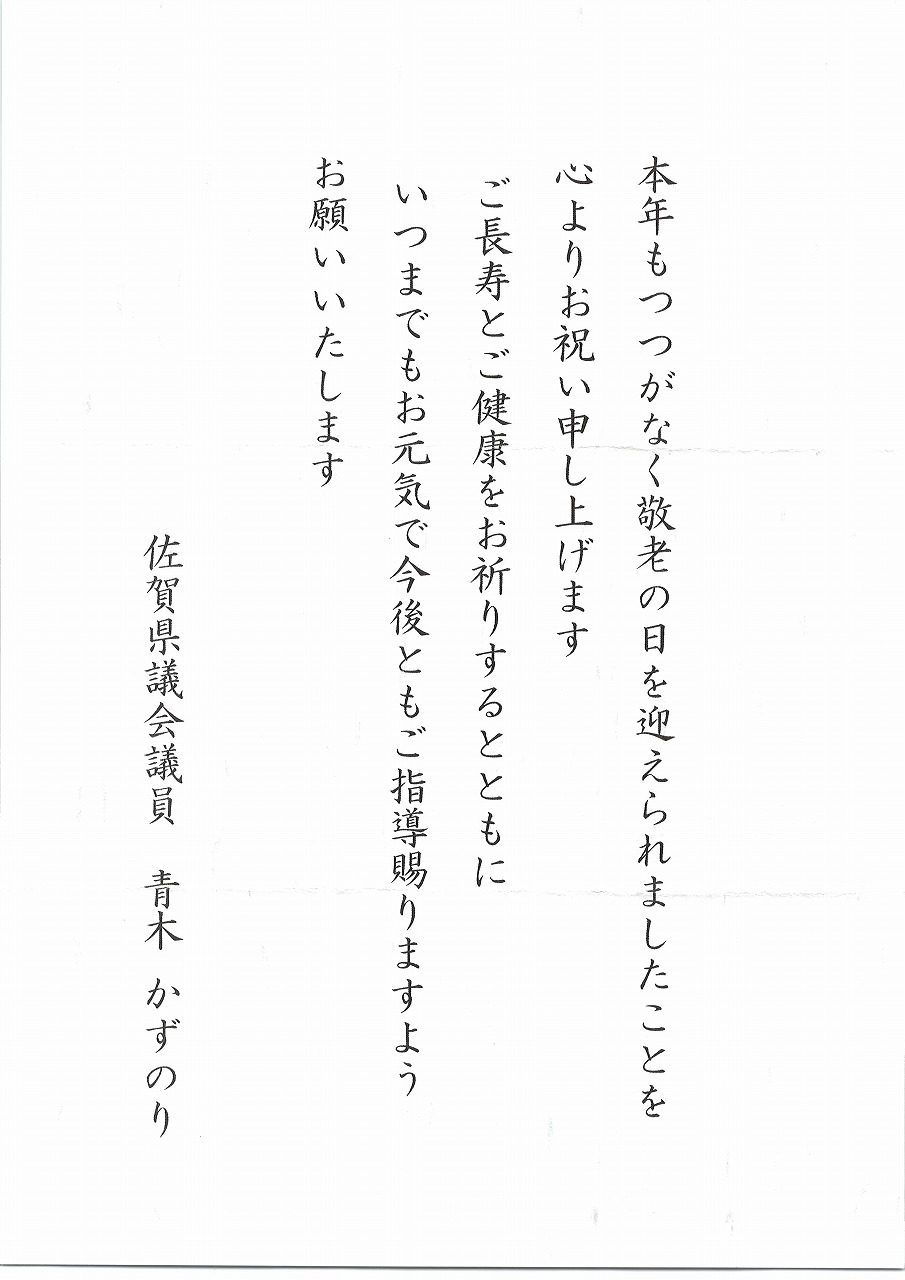 本年もつつがなく敬老の日を迎えられましたことを
心よりお祝い申し上げます
ご長寿とご健康をお祈りするとともに
いつまでもお元気で今後ともご指導賜りますよう
お願いいたします
佐賀県議会議員 青木 かずのり